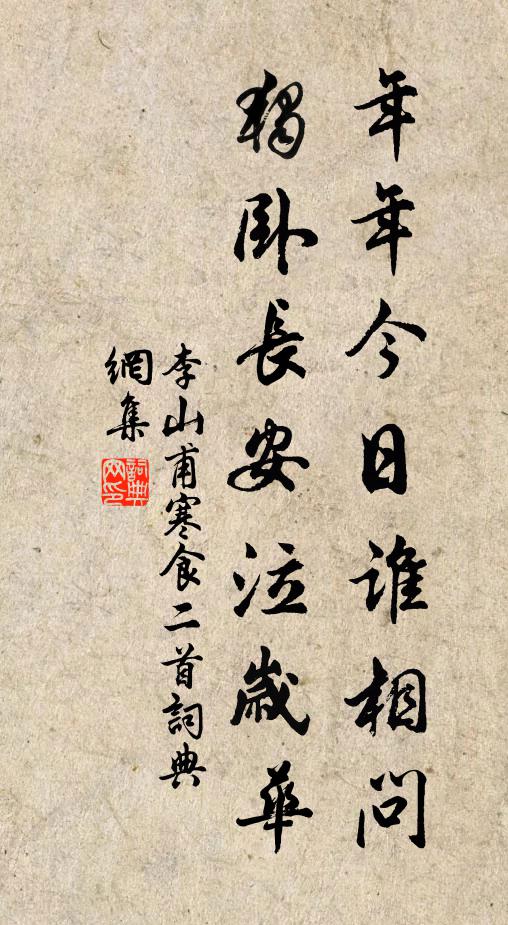 年年今日誰相問
獨卧長安泣歲華
李山甫寒食二首詞典
網集
詞典
网印